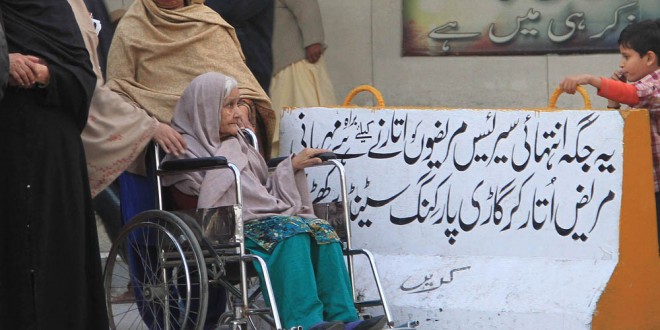 ذکر ہی میں ہے
یہ جگہ انتہائی سیرئیس مریضوں کو اتارنے کیلئے ہے براہ مہربانی
مریض اُتار کر گاڑی پارکنگ سٹینڈ
کریں